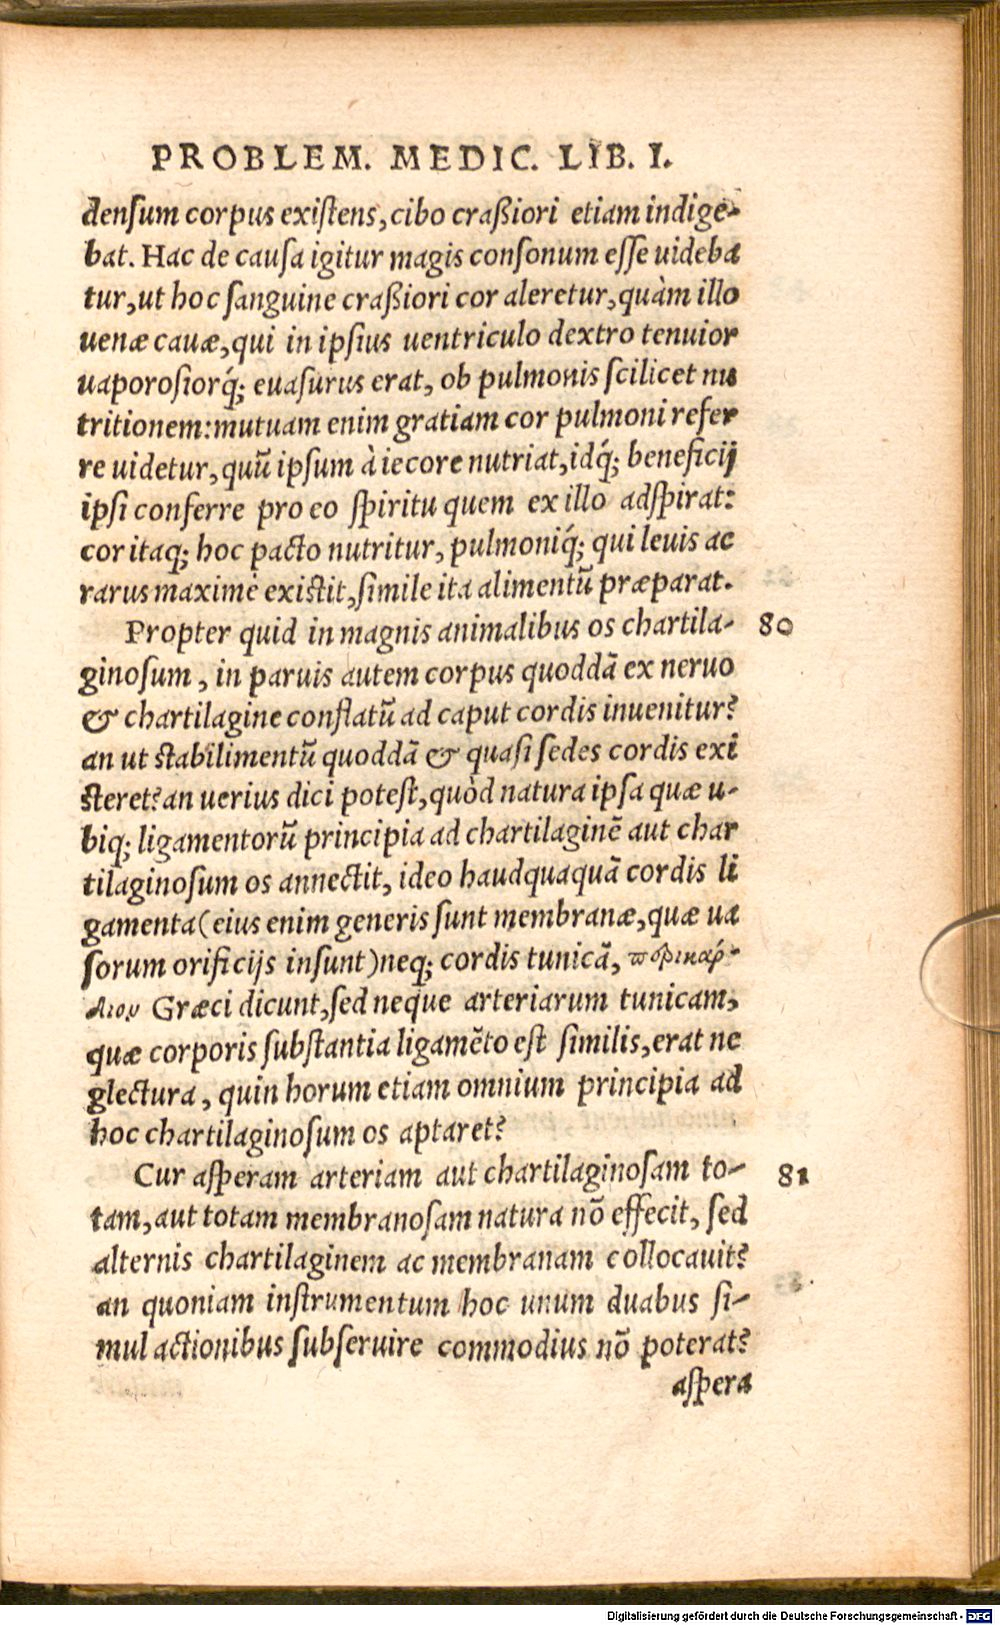 PROBLEM. MEDIC. LIB. I.
densum corpus existens, cibo craßiori etiam indige-
bat. Hac de causa igitur magis consonum esse uideba
tur, ut hoc sanguine craßiori cor aleretur, quàm illo
uenæ cauæ, qui in ipsius uentriculo dextro tenuior
uaporosiorq́; euasurus erat, ob pulmonis scilicet nu
tritionem: mutuam enim gratiam cor pulmoni refer
re uidetur, quũ ipsum à iecore nutriat, idq́; beneficij
ipsi conferre pro eo spiritu quem ex illo adspirat:
cor itaq; hoc pacto nutritur, pulmoniq́; qui leuis ac
rarus maximè existit, simile ita alimentũ præparat.
Propter quid in magnis animalibus os chartila- 80
ginosum, in paruis autem corpus quoddã ex neruo
& chartilagine conflatũ ad caput cordis inuenitur?
an ut stabilimentũ quoddã & quasi sedes cordis exi
steret? an uerius dici potest, quòd natura ipsa quæ u-
biq; ligamentorũ principia ad chartilaginẽ aut char
tilaginosum os annectit, ideo haudquaquã cordis li
gamenta (eius enim generis sunt membranæ, quæ ua
sorum orificijs insunt) neq; cordis tunicã, περικάρ-
διον Græci dicunt, sed neque arteriarum tunicam,
quæ corporis substantia ligamẽto est similis, erat ne
glectura, quin horum etiam omnium principia ad
hoc chartilaginosum os aptaret?
Cur asperam arteriam aut chartilaginosam to- 81
tam, aut totam membranosam natura nõ effecit, sed
alternis chartilaginem ac membranam collocauit?
an quoniam instrumentum hoc unum duabus si-
mul actionibus subseruire commodius nõ poterat?
aspera
Digitalisierung gefördert durch die Deutsche Forschungsgemeinschaft - DFG